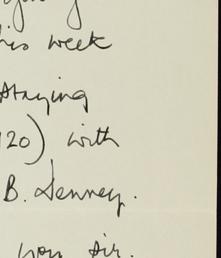 his week
staying
120) with
B. Denney.
you sir.